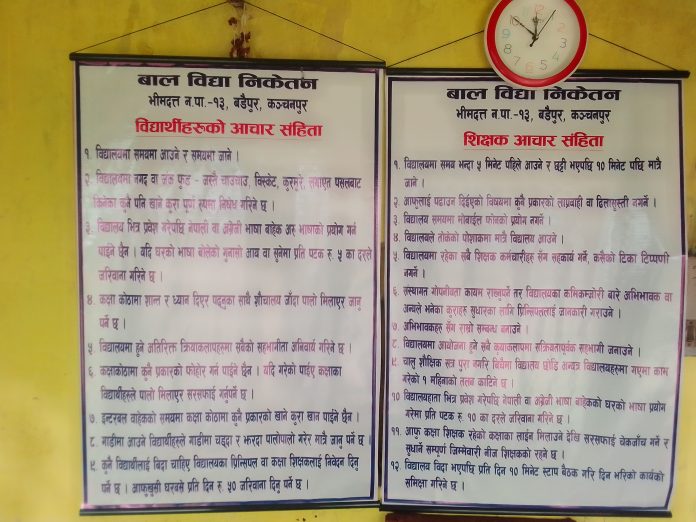 बाल विद्या निकेतन
भीमदत्त न.पा.-१३, बडैपुर, कञ्चनपुर
विद्यार्थीहरुको आचार संहिता
१. विद्यालयमा समयमा आउने र समयमा जाने ।
२. विद्यालयमा नगद वा जंक फुड - जस्तै चाउचाउ, विस्केट, कुरमुरे, लगाएत पसलबाट
किनेका कुनै पनि खाने कुरा पूर्ण रुपमा निषेध गरिने छ ।
३. विद्यालय भित्र प्रवेश गरेपछि नेपाली वा अंग्रेजी भाषा बाहेक अरु भाषाको प्रयोग गर्न
पाईने छैन । यदि घरको भाषा बोलेको गुनासो आय वा सुनेमा प्रति पटक रु ५ का दरले
जरिवाना गरिने छ ।
४. कक्षा कोठामा शान्त र ध्यान दिएर पढ्नुका साथै शौचालय जाँदा पालो मिलाएर जानु
पर्ने छ ।
५. विद्यालयमा हुने अतिरिक्त क्रियाकलापहरुमा सबैको सहभागीता अनिवार्य गरिने छ ।
६. कक्षाकोठामा कुनै प्रकारको फोहोर गर्न पाईने छैन । यदि गरेको पाईए कक्षाका
विद्यार्थीहरुले पालो मिलाएर सरसफाई गर्नुपर्ने छ ।
७. इन्टरबल बाहेकको समयमा कक्षा कोठामा कुनै प्रकारको खाने कुरा खान पाईने छैन ।
८. गाडीमा आउने विद्यार्थीहरुले गाडीमा चढ्दा र झरदा पालोपालो गरेर मात्रै जानु पर्ने छ ।
९. कुनै विद्यार्थीलाई बिदा चाहिए विद्यालयका प्रिन्सिपल वा कक्षा शिक्षकलाई निवेदन दिनु
पर्ने छ । आफुखुसी घरबसे प्रति दिन रु. ५० जरिवाना दिनु पर्ने छ ।
बाल विद्या निकेतन
भीमदत्त न.पा.-१३, बडैपुर, कञ्चनपुर
शिक्षक आचार संहिता
१. विद्यालयमा समय भन्दा ५ मिनेट पहिले आउने र छुट्टी भएपछि १० मिनेट पछि मात्रै
जाने ।
२. आफुलाई पढाउन दिईएको विषयमा कुनै प्रकारको लाप्रवाही वा ढिलासुस्ती नगर्ने ।
३. विद्यालय समयमा मोबाईल फोनको प्रयोग नगर्ने ।
४. विद्यालयले तोकेको पोशाकमा मात्रै विद्यालय आउने ।
५. विद्यालयमा रहेका सबै शिक्षक कर्मचारीहरु सँग सहकार्य गर्ने, कसैको टिका टिप्पणी
नगर्ने ।
६. संस्थागत गोपनीयता कायम राख्नुपर्ने तर विद्यालयका कमिकम्जोरी बारे अभिभावक वा
अन्यले भनेका कुराहरु सुधारका लागि प्रिन्सिपललाई जानकारी गराउने ।
७. अभिभावकहरु सँग राम्रो सम्बन्ध जनाउने ।
८. विद्यालयमा आयोजना हुने सबै क्रियाकलापमा सक्रियतापूर्वक सहभागी जनाउने ।
९. चालु शैक्षिक सत्र पुरा नगरि बिचैमा विद्यालय छोडि अन्यत्र विद्यालयहरुमा गएमा काम
गरेको १ महिनाको तलब काटिने छ ।
१०. विद्यालयहाता भित्र प्रवेश गरेपछि नेपाली वा अंग्रेजी भाषा बाहेकको घरको भाषा प्रयोग
गरेमा प्रति पटक रु. १० का दरले जरिवाना गरिने छ ।
११. आफु कक्षा शिक्षक रहेको कक्षाका लाईन मिलाउने देखि सरसफाई चेकजाँच गर्ने र
सुधार्ने सम्पूर्ण जिम्मेवारी नीज शिक्षकको रहने छ ।
१२. विद्यालय विदा भएपछि प्रति दिन १० मिनेट स्टाप बैठक गरि दिन भरिको कार्यको
समिक्षा गरिने छ ।